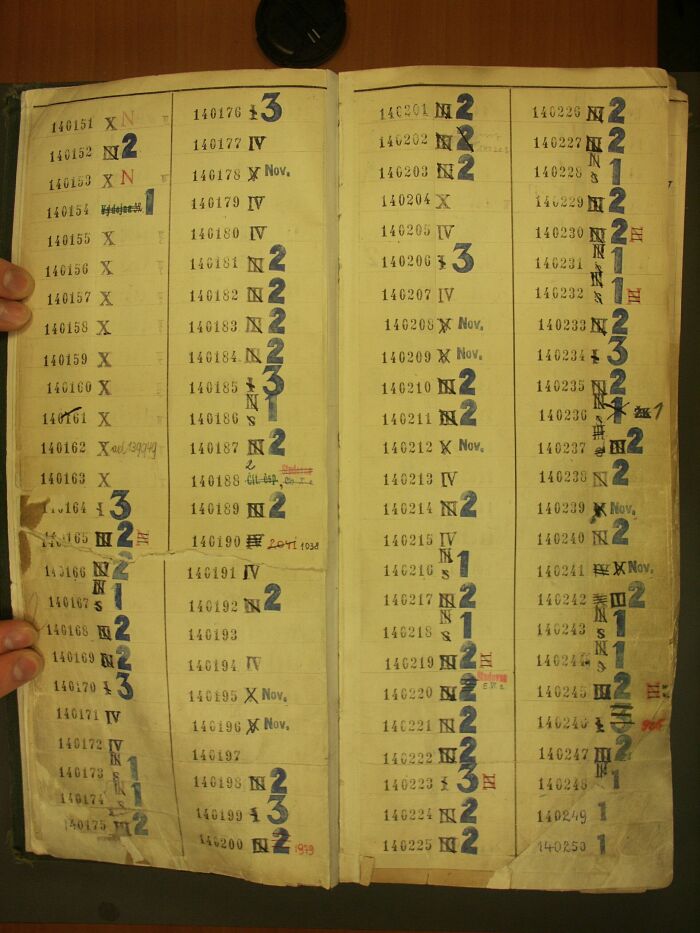 140151 X N
140152 N 2
140153 X N
140154 Výdejna M. 1
140155 X
140156 X
140157 X
140158 X
140159 X
140160 X
140161 X
140162 X
140163 X
140164 I 3
140165 III 2 III
140166 N 2
140167 N s 1
140168 N 2
140169 N 2
140170 I 3
140171 IV
140172 IV
140173 N s 1
140174 N s 1
140175 III 2
140176 I 3
140177 IV
140178 X Nov.
140179 IV
140180 IV
140181 N 2
140182 N 2
140183 N 2
140184 N 2
140185 I 3
140186 N s 1
140187 N 2
140188 2 Čít. čsp.
140189 N 2
140190 IV 2041 1038
140191 IV
140192 N 2
140193
140194 IV
140195 X Nov.
140196 X Nov.
140197
140198 N 2
140199 I 3
140200 N 2 1979
140201 N 2
140202 N 2
140203 N 2
140204 X
140205 IV
140206 I 3
140207 IV
140208 X Nov.
140209 X Nov.
140210 N 2
140211 N 2
140212 X Nov.
140213 IV
140214 N 2
140215 IV
140216 N s 1
140217 N 2
140218 N s 1
140219 N 2 III
140220 N 2 Studovna
140221 N 2
140222 N 2
140223 I 3 III
140224 N 2
140225 N 2
140226 N 2
140227 N 2
140228 N s 1
140229 N 2
140230 N 2 III
140231 N s 1
140232 N s 1 III
140233 N 2
140234 I 3
140235 N 2
140236 N s 1 1
140237 III 2
140238 N 2
140239 X Nov.
140240 N 2
140241 X Nov.
140242 III 2
140243 N s 1
140244 N s 1
140245 III 2 III
140246 I 3
140247 III 2
140248 N 1
140249 1
140250 1